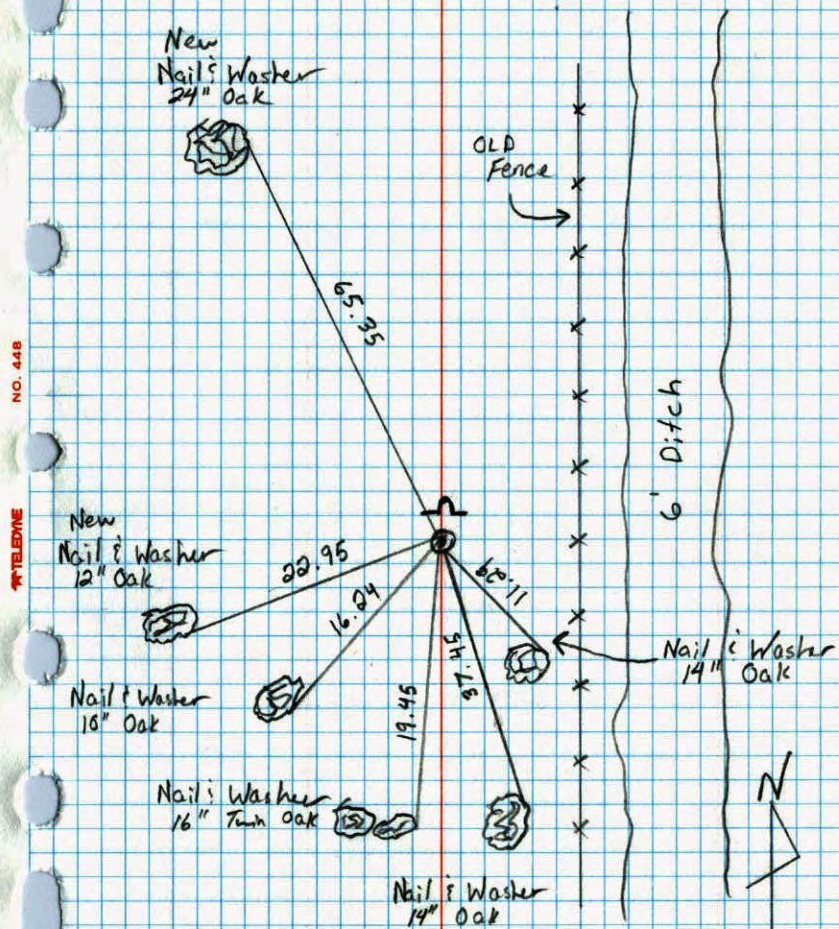 New
Nail & Washer
24" Oak
OLD
Fence
65.35
6' Ditch
NO. 448
TELEDYNE
New
Nail & Washer
12" Oak
22.95
16.24
11.29
37.45
19.45
Nail & Washer
14" Oak
Nail & Washer
10" Oak
Nail & Washer
16" Twin Oak
Nail & Washer
14" Oak
N